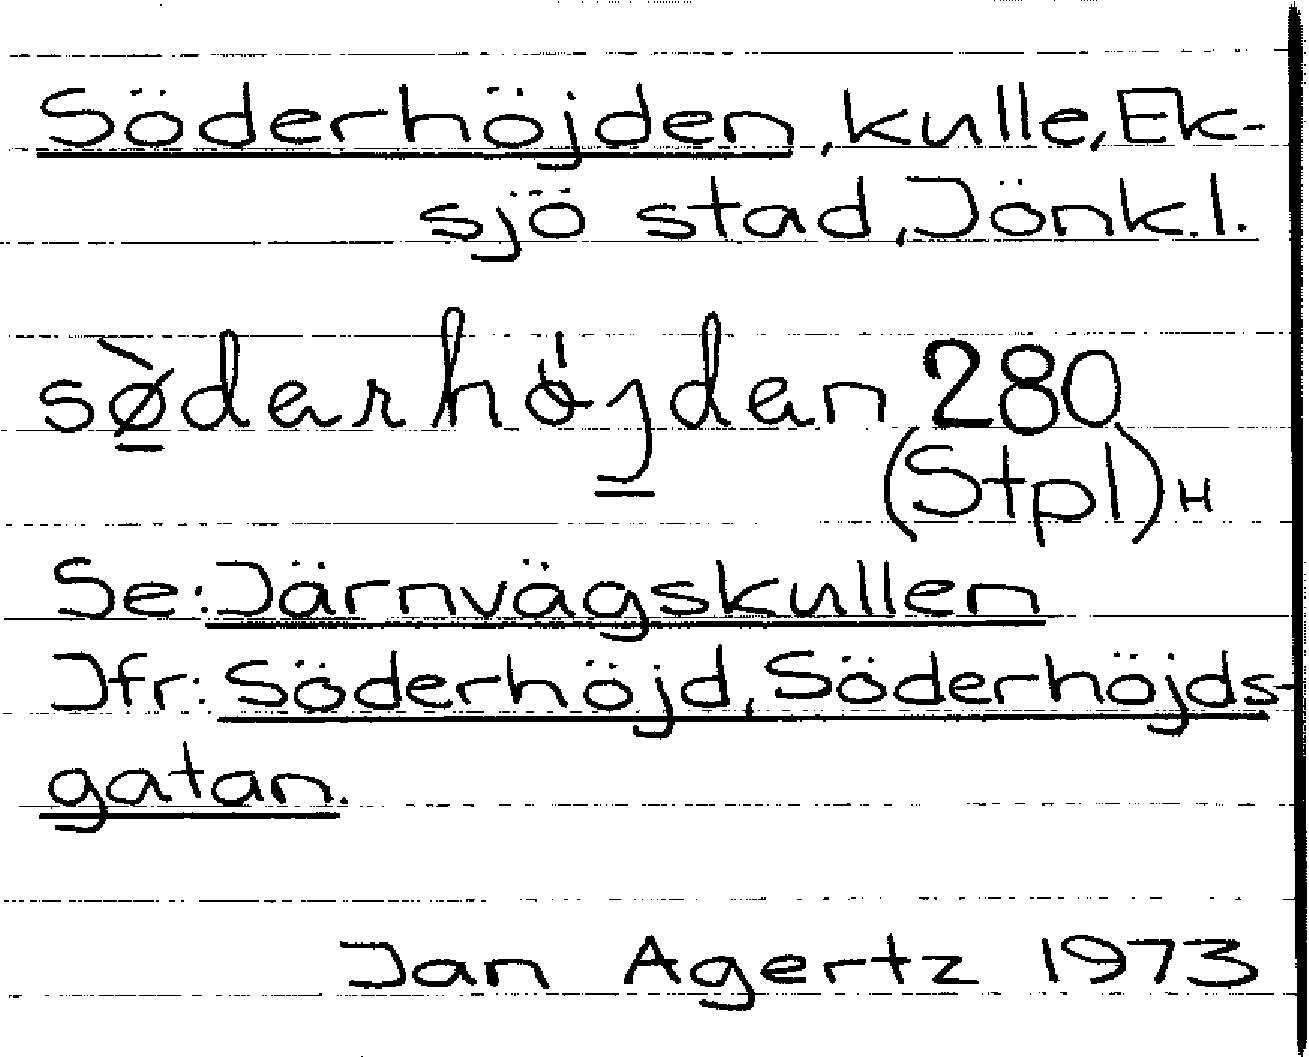 Söderhöjden, kulle, Ek-
sjö stad, Jönk.l.
sø̱̀derhöjden 280
(Stpl) H
Se: Järnvägskullen
Jfr: Söderhöjd, Söderhöjds-
gatan.
Jan Agertz 1973